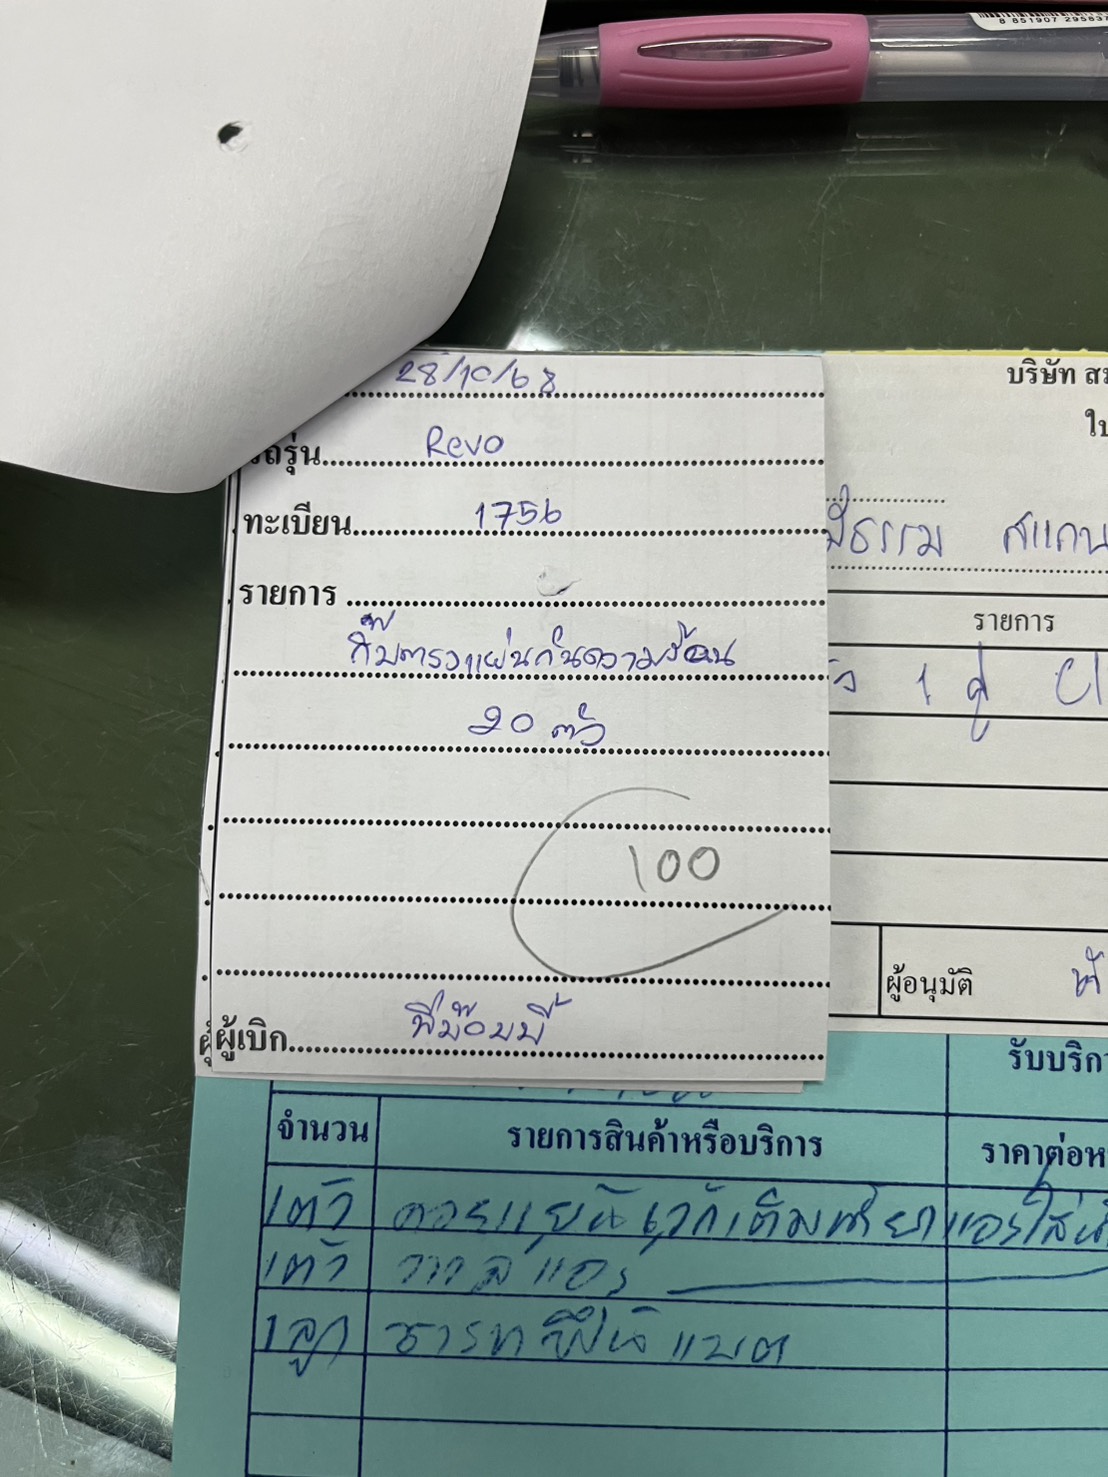 8 851907 29583
28/10/68
รถรุ่น Revo
ทะเบียน 1756
รายการ
กิ๊บตรงแผ่นกันความร้อน
20 ตัว
100
ผู้เบิก พี่บ๊อบบี้
บริษัท
สแกน
รายการ
1 คู่
ผู้อนุมัติ
รับบริกา
จำนวน รายการสินค้าหรือบริการ ราคาต่อห
1 ตัว
1 ตัว วาล์วแอร์
1 ลูก ชาร์ท แบต